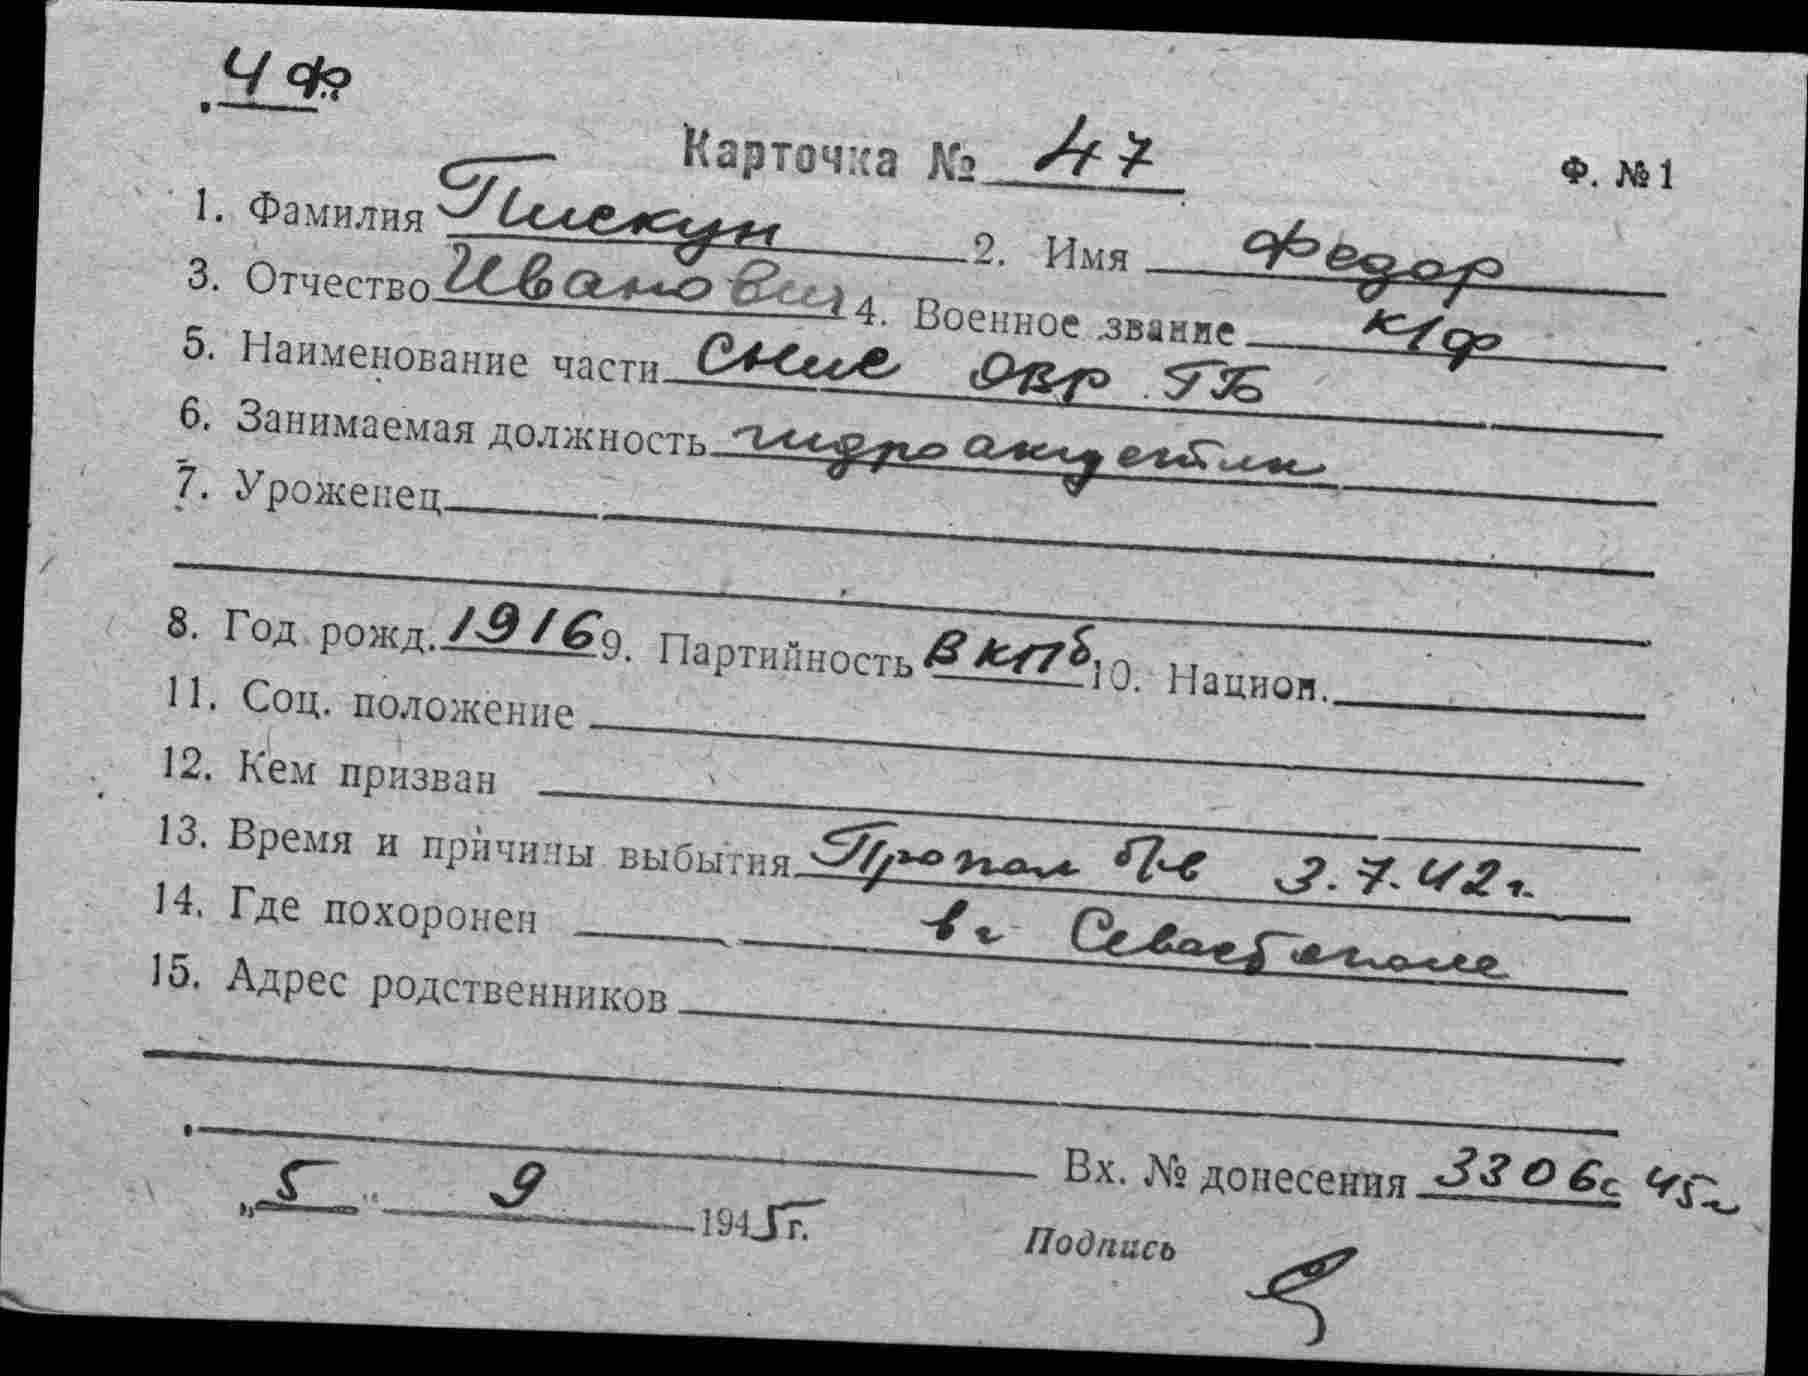 ЧФ
Карточка № 47
Ф. №1
1. Фамилия Пискун 2. Имя Федор
3. Отчество Иванович 4. Военное звание к/ф
5. Наименование части СНиС ОВР ГБ
6. Занимаемая должность гидроакустик
7. Уроженец
8. Год рожд. 1916 9. Партийность ВКПб 10. Национ.
11. Соц. положение
12. Кем призван
13. Время и причины выбытия Пропал б/в 3.7.42 г.
14. Где похоронен в г Севастополе
15. Адрес родственников
Вх. № донесения 3306с 45г
„5“ 9 1945 г.
Подпись